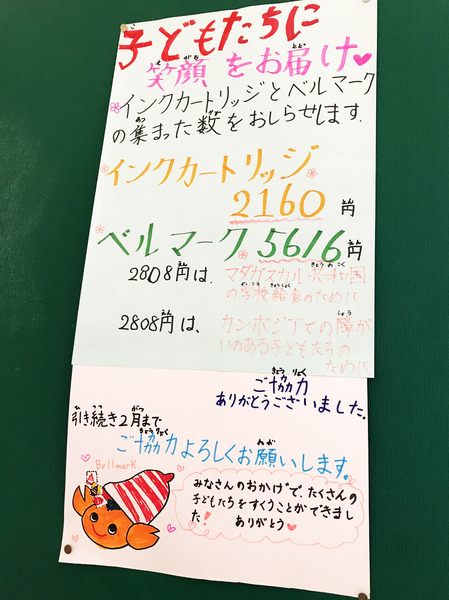 子どもたちに
笑顔をお届け♥
インクカートリッジとベルマーク
の集まった数をおしらせします.
インクカートリッジ
2160円
ベルマーク 5616円
2808円は、マダガスカル共和国
の学校給食のために
2808円は、カンボジアでの障が
いのある子どもたちの
ために
ご協力
ありがとうございました.
引き続き2月まで
ご協力よろしくお願いします。
Bellmark
みなさんのおかげで、たくさんの
子どもたちをすくうことができまし
た! ありがとう♥